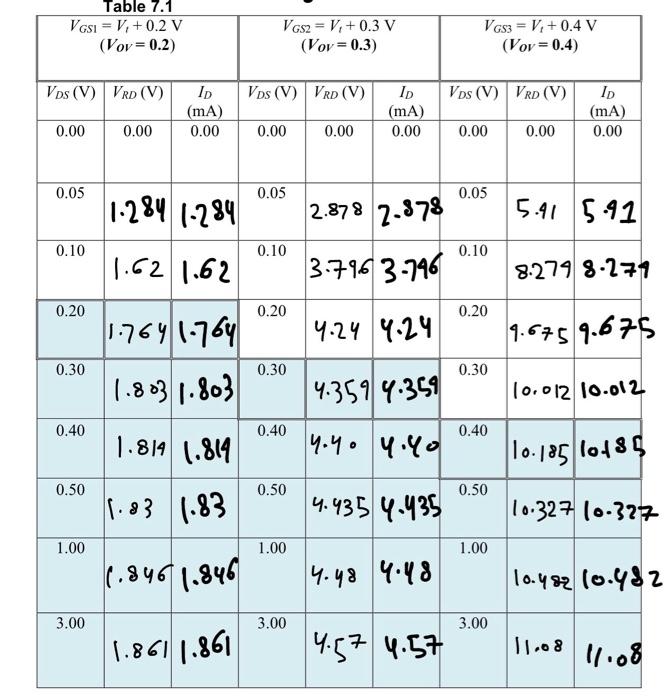 Table 7.1
VGS1 = Vt + 0.2 V VGS2 = Vt + 0.3 V VGS3 = Vt + 0.4 V
(VOV = 0.2) (VOV = 0.3) (VOV = 0.4)
VDS (V) VRD (V) ID VDS (V) VRD (V) ID VDS (V) VRD (V) ID
(mA) (mA) (mA)
0.00 0.00 0.00 0.00 0.00 0.00 0.00 0.00 0.00
0.05 1.284 1.284 0.05 2.878 2.878 0.05 5.91 5.91
0.10 1.62 1.62 0.10 3.796 3.796 0.10 8.279 8.279
0.20 1.764 1.764 0.20 4.24 4.24 0.20 9.675 9.675
0.30 1.803 1.803 0.30 4.359 4.359 0.30 10.012 10.012
0.40 1.819 1.819 0.40 4.40 4.40 0.40 10.185 10.185
0.50 1.83 1.83 0.50 4.435 4.435 0.50 10.327 10.327
1.00 1.846 1.846 1.00 4.48 4.48 1.00 10.482 10.482
3.00 1.861 1.861 3.00 4.57 4.57 3.00 11.08 11.08